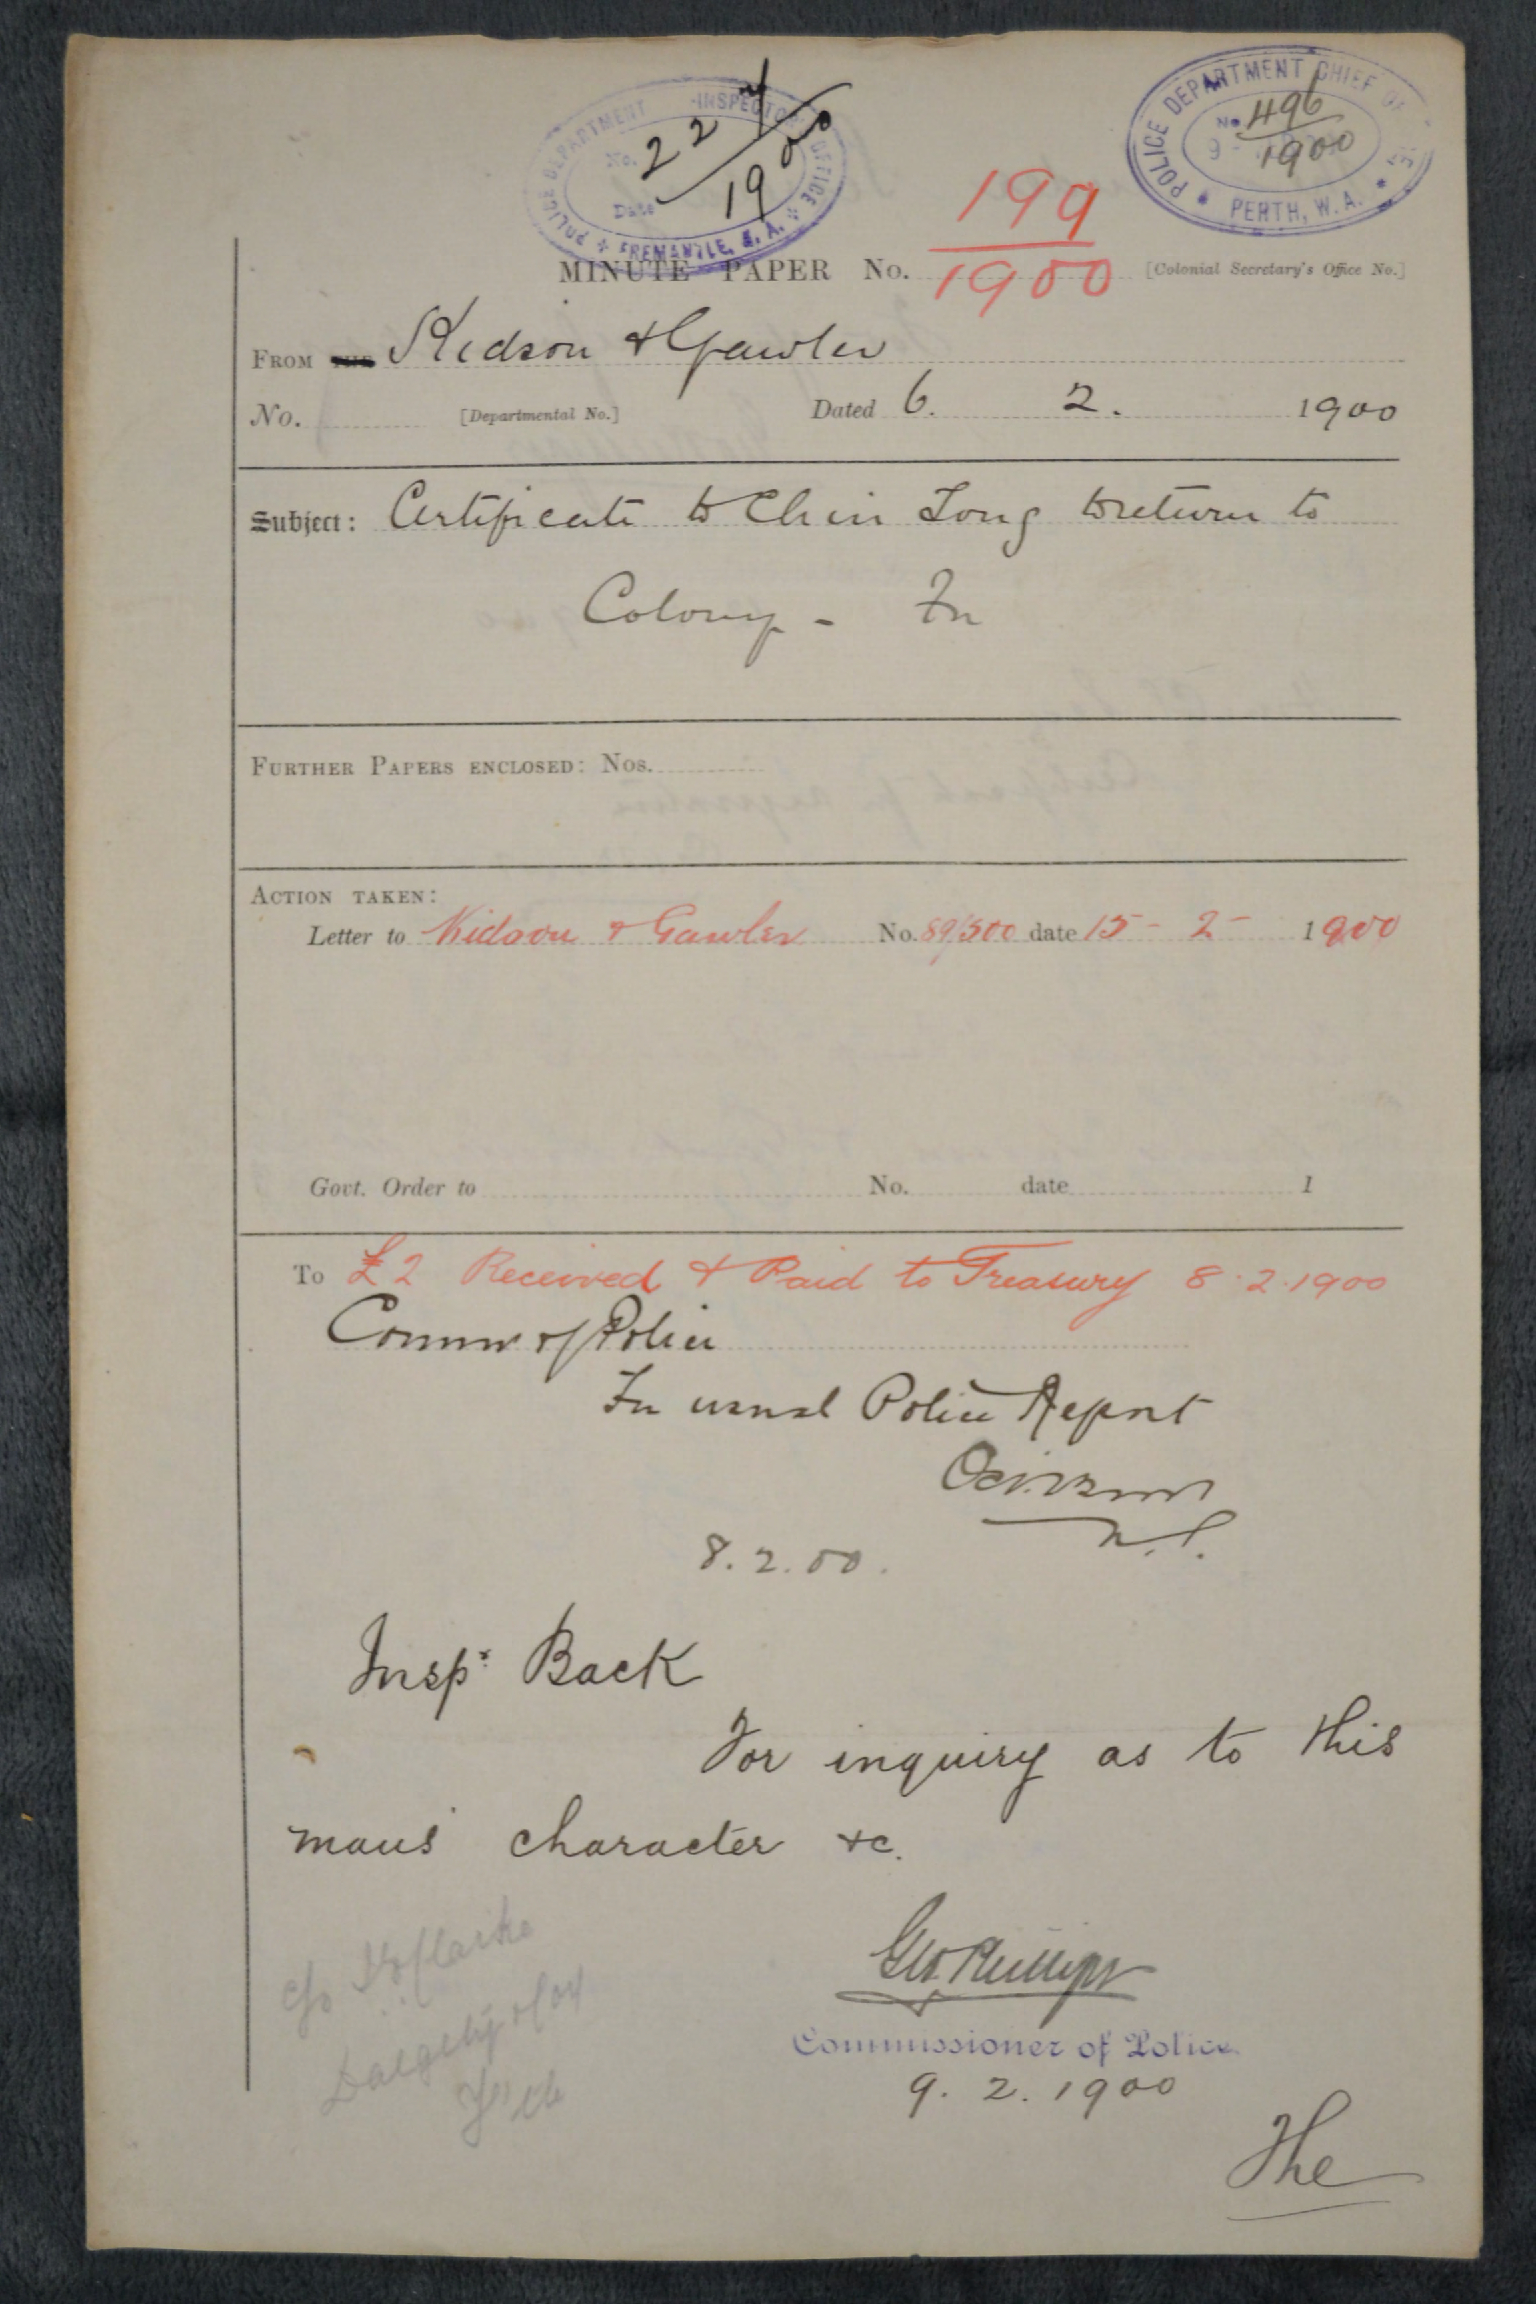 POLICE DEPARTMENT INSPECTOR OFFICE
No. 224
Date 1900
FREMANTLE, W.A.
POLICE DEPARTMENT CHIEF OF
No. 496
1900
PERTH, W.A.
199
MINUTE PAPER No. 1900 [Colonial Secretary's Office No.]
FROM THE Kidson & Gawler
No. [Departmental No.] Dated 6. 2. 1900
Subject: Certificate to Chin Tong to return to
Colony - Fr
FURTHER PAPERS ENCLOSED: Nos.
ACTION TAKEN:
Letter to Kidson & Gawler No. 89/500 date 15 - 2 - 1900
Govt. Order to No. date 1
To £2 Received & Paid to Treasury 8.2.1900
Commr of Police
For usual Police Report
8.2.00.
Inspr. Back
For inquiry as to this
mans character &c.
Geo Phillips
Commissioner of Police
9. 2. 1900
c/o Clarke
Dalgety & Coy
The